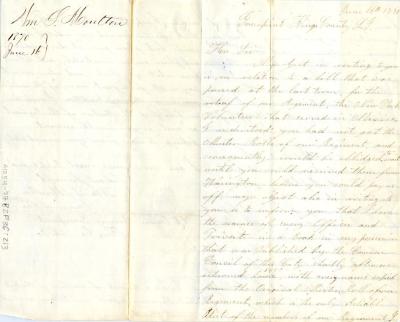 Wm S. Moulton
1870
June 16
June 16th 1870
Greenpoint Kings County L.I.
Hon Sir
My object in writing to you
is in relation to a bill that was
passed at the last term, for the
relief of our Regiment, the New York
Volunteers that served in Mexico
I understand you had not got the
Muster Rolls of our Regiment, and
consequently would be obliged to wait
until you could received them from
Washington before you could pay us
off. my object also in writing to
you is to inform you that I have
the names of every Officer and
Private in a Book in my possession
that was Published by the Common
Council of the City shortly after we
returned home, with every name copied
from the Original Muster Roll of our
Regiment, which is the only Reliable
list of the members of our Regiment